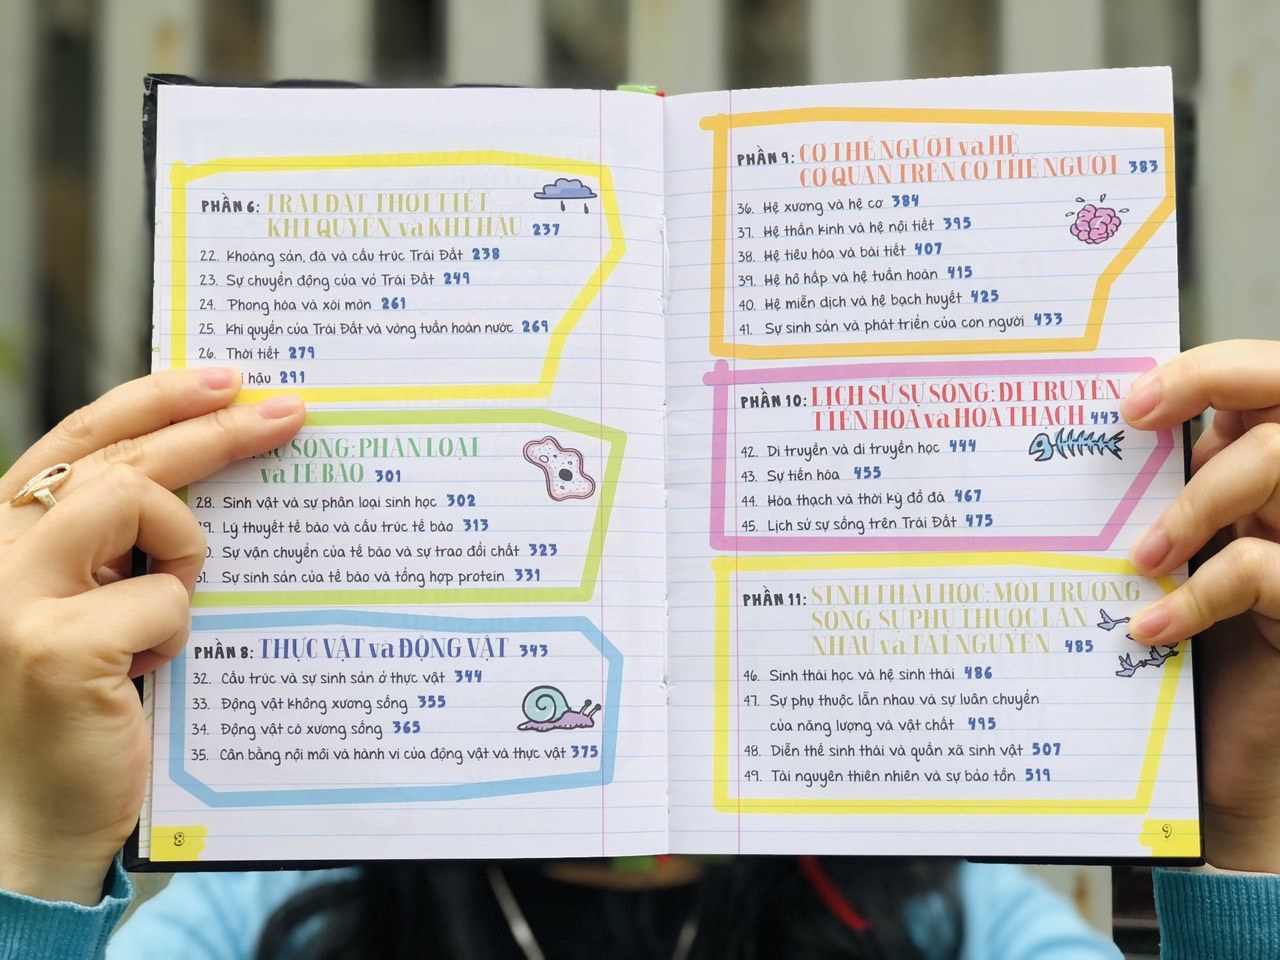 PHẦN 6: TRÁI ĐẤT THỜI TIẾT
KHÍ QUYỂN và KHÍ HẬU 237
22. Khoáng sản, đá và cấu trúc Trái Đất 238
23. Sự chuyển động của vỏ Trái Đất 249
24. Phong hóa và xói mòn 261
25. Khí quyển của Trái Đất và vòng tuần hoàn nước 269
26. Thời tiết 279
hậu 291
SỰ SỐNG: PHÂN LOẠI
và TẾ BÀO 301
28. Sinh vật và sự phân loại sinh học 302
Lý thuyết tế bào và cấu trúc tế bào 313
Sự vận chuyển của tế bào và sự trao đổi chất 323
Sự sinh sản của tế bào và tổng hợp protein 331
PHẦN 8: THỰC VẬT và ĐỘNG VẬT 343
32. Cấu trúc và sự sinh sản ở thực vật 344
33. Động vật không xương sống 355
34. Động vật có xương sống 365
35. Cân bằng nội môi và hành vi của động vật và thực vật 375
8
PHẦN 9: CƠ THỂ NGƯỜI và HỆ
CƠ QUAN TRÊN CƠ THỂ NGƯỜI 383
36. Hệ xương và hệ cơ 384
37. Hệ thần kinh và hệ nội tiết 395
38. Hệ tiêu hóa và bài tiết 407
39. Hệ hô hấp và hệ tuần hoàn 415
40. Hệ miễn dịch và hệ bạch huyết 425
41. Sự sinh sản và phát triển của con người 433
PHẦN 10: LỊCH SỬ SỰ SỐNG: DI TRUYỀN,
TIẾN HÓA và HÓA THẠCH 443
42. Di truyền và di truyền học 444
43. Sự tiến hóa 455
44. Hóa thạch và thời kỳ đồ đá 467
45. Lịch sử sự sống trên Trái Đất 475
PHẦN 11: SINH THÁI HỌC: MÔI TRƯỜNG
SỐNG, SỰ PHỤ THUỘC LẪN
NHAU và TÀI NGUYÊN 485
46. Sinh thái học và hệ sinh thái 486
47. Sự phụ thuộc lẫn nhau và sự luân chuyển
của năng lượng và vật chất 495
48. Diễn thế sinh thái và quần xã sinh vật 507
49. Tài nguyên thiên nhiên và sự bảo tồn 519
9